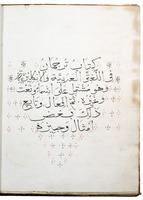 كتاب ترجمان
في اللغة العربية
وهو مشتمل على اسما ونعت
وغيره ثم افعال وتابع
ذلك وبعض
امثال وجيزه